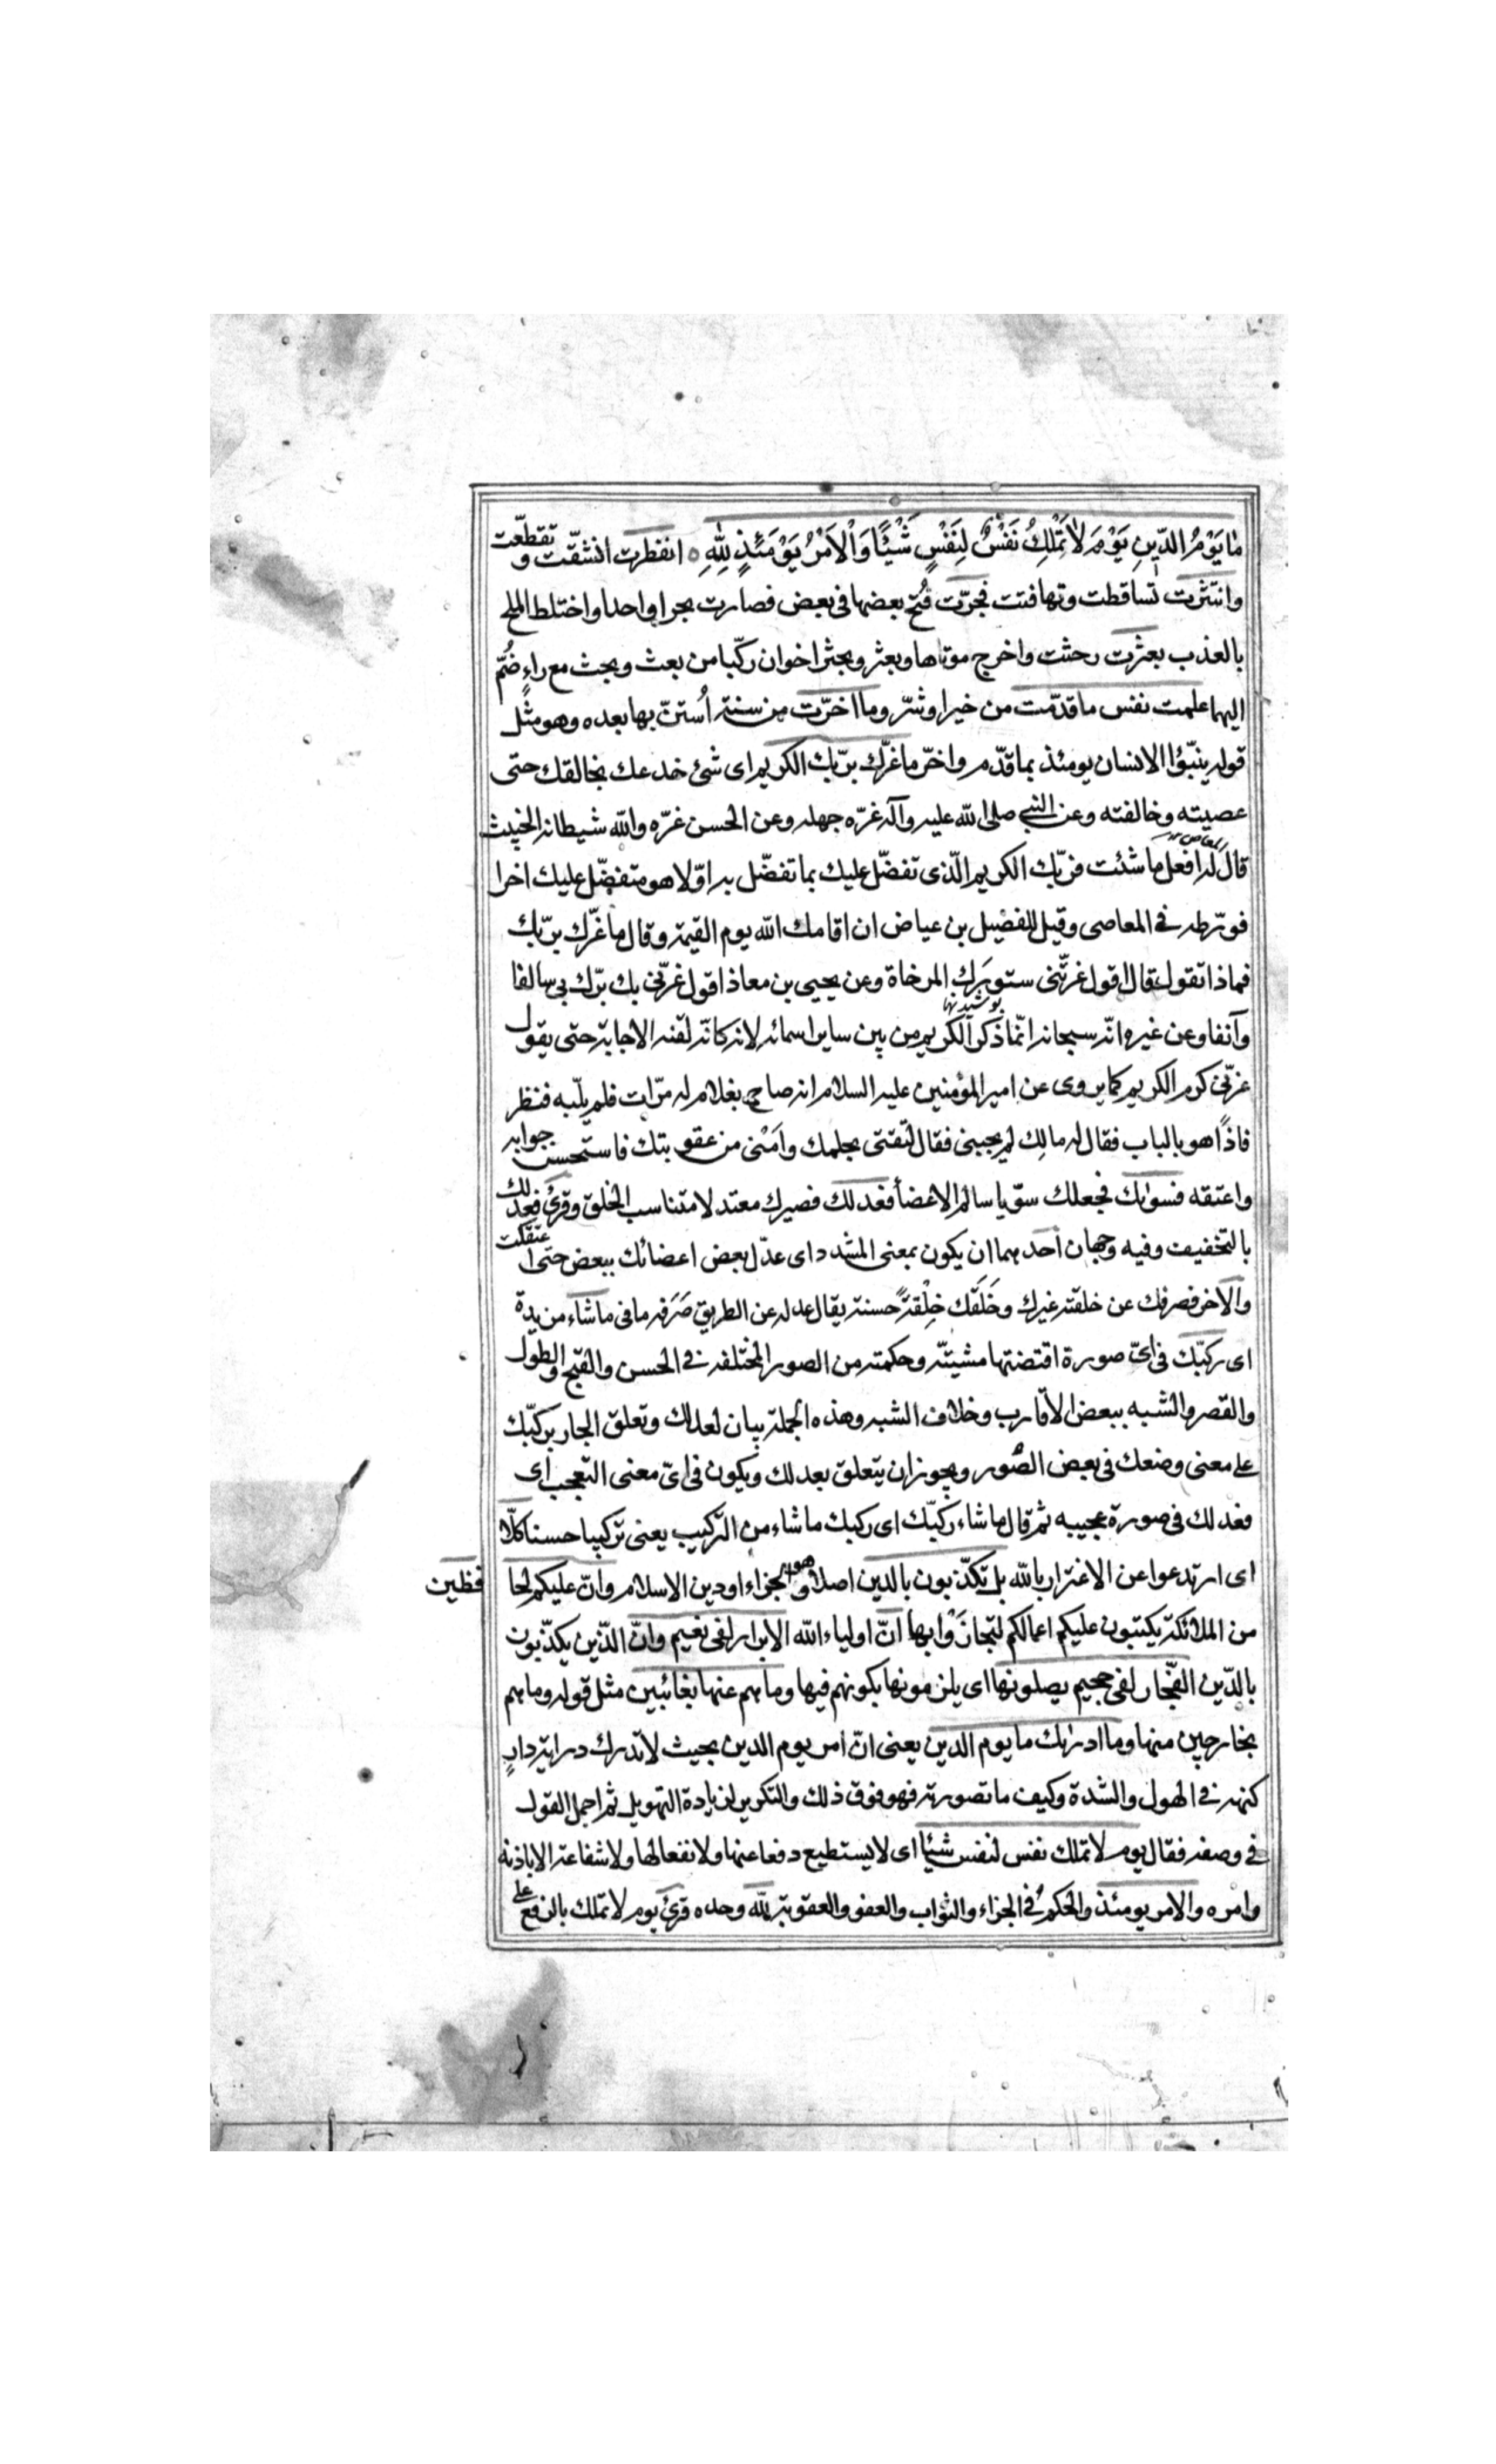 مٰا يَوْمُ الدّينِ يَوْمَ لاٰ تَمْلِكُ نَفْسٌ لِنَفْسٍ شَيْئًا وَالْاَمْرُ يَوْمَئِذٍ لِلّٰهِ ه انفطرت انشقّت و تقطّعت
وانتثرت تساقطت وتهافتت فجرّت فُتح بعضها فى بعض فصارت بحرا واحدا واختلط الملح
بالعذب بعثرت رحثت واخرج موتاها وبعثر وبحثر اخوان ركّبا من بعث وبحث مع راءٍ ضُمّ
اليهما علمت نفس ما قدّمت من خير او شرّ وما اخرّت من سنته اُستنّ بها بعده وهو مثل
قوله ينبّؤا الانسان يومئذ بما قدّم واخّر ما غرّك بربّك الكريم اى شئ خدعك بخالقك حتى
عصيته وخالفته وعن النبى صلى الله عليه وآله غرّه جهله وعن الحسن غرّه والله شيطانه الخبيث
قال له افعل ما شئت فربّك الكريم الّذى تفضّل عليك بما تفضّل به اوّلا هو متفضّل عليك اخرا
فورّطه فى المعاصى وقيل للفضيل بن عياض ان اقامك الله يوم القيمة وقال ما غرّك بربّك
فماذا تقول قال اقول غرتّنى ستورَك المرخاة وعن يحيى بن معاذ اقول غرّنى بك برّك بى سالفا
پوشيدنها
وآنفا وعن غيره انّه سبحانه انّما ذكر الكريم من بين ساير اسمائه لانه كانّه لقنه الاجابة حتى يقول
غرّنى كرم الكريم كما يروى عن امير المؤمنين عليه السلام انه صاح بغلام له مرّات فلم يلّبه فنظر
فاذًا هو بالباب فقال له مالِك لم يجبنى فقال لثقتى بحلمك وامَنْى من عقوبتك فاستحسن جوابه
واعتقه فسواك فجعلك سوّيا سالم الاعضأ فعدلك فصيرك معتدلا متناسب الخلق وقرئ فعدلك
بالتخفيف وفيه وجهان احدهما ان يكون بمعنى المشدد اى عدّل بعض اعضائك ببعض حتى اعتدلت
والآخر فصرفك عن خلقته غيرك وخَلَقَك خِلْقةً حسنة يقال عدله عن الطريق صَرَفه ما فى ما شاء مزيدة
اى ركبّك فى اىّ صورة اقتضتها مشيتّه وحكمته من الصور المختلفه فى الحسن والقبح والطول
والقصر والشبه ببعض الاقارب وخلاف الشبه وهذه الجملة بيان لعدلك وتعلق الجار بركبّك
على معنى وضعك فى بعض الصُور ويجوز ان يتعلق بعدلك ويكون فى اىّ معنى التعجب اى
فعدلك فى صورة عجيبه ثم قال ما شاء ركبّك اى ركبك ما شاء من التركيب يعنى تركيبا حسنا كلّا
اى ارتدعوا عن الاغترار بالله بل تكذّبون بالدين اصلا وهو الجزاء او دين الاسلام وانّ عليكم لحا
فظين
من الملائكة يكتبون عليكم اعمالكم لتجازَوْا بها انّ اولياء الله الابرار لفى نعيم وانّ الذّين يكذّبون
بالدّين الفجّار لفى جحيم يصلونها اى يلزمونها بكونهم فيها وما هم عنها بغائبين مثل قوله وما هم
بخارجين منها وما ادريك ما يوم الدين يعنى انّ امر يوم الدين بحيث لا تدرك دراية دارٍ
كنهه فى الهول والشدة وكيف ما تصورته فهو فوق ذلك والتكرير لزيادة التهويل ثم اجمل القول
فى وصفه فقال يوم لا تملك نفس لنفس شيئا اى لا يستطيع دفعا عنها ولا نفعا لها ولا شفاعة الا باذنه
وامره والامر يومئذ والحكم فى الجزاء والثواب والعفو والعقوبة لله وحده قرئ يوم لا تملك بالرفع على